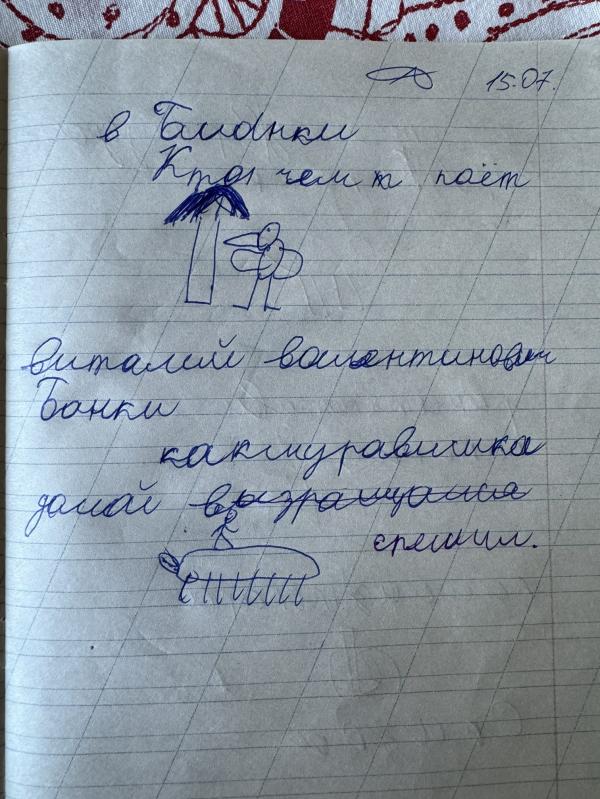 15.07.
в Бианки
Кто чем поёт
виталий валентинович
Банки
какмуравишка
дамой вазращался
спешил.